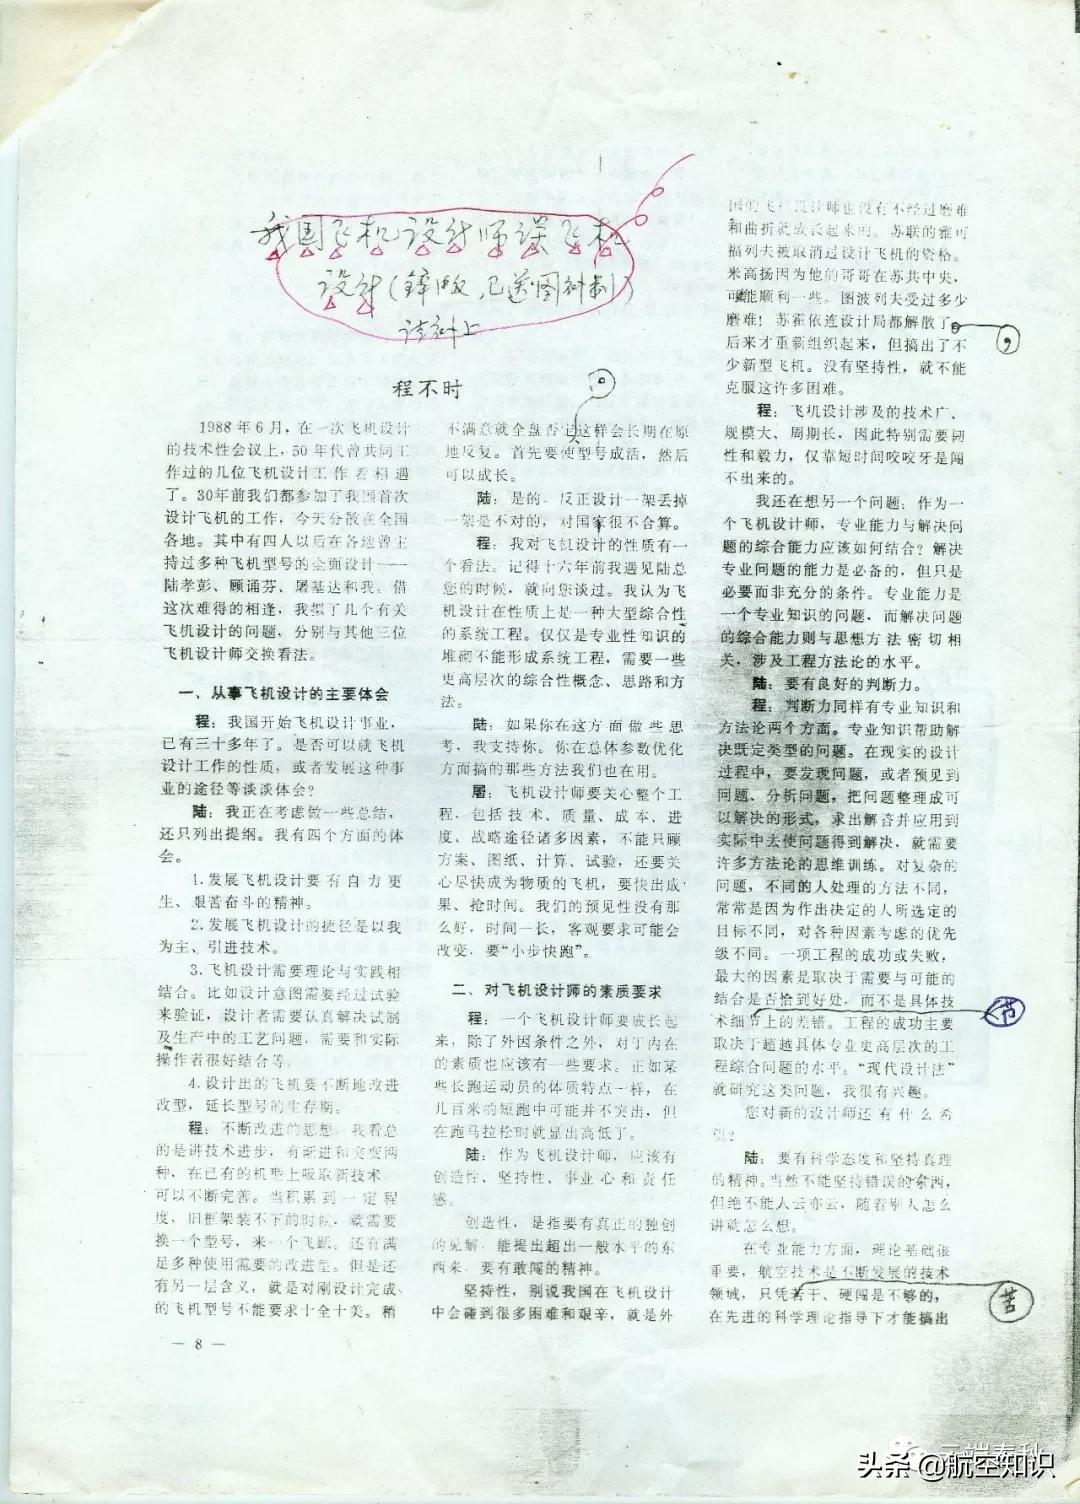 我国飞机设计师谈飞机
设计(锌版,已送图补制)
请补上
程不时
1988年6月,在一次飞机设计
的技术性会议上,50年代曾共同工
作过的几位飞机设计工作者相遇
了。30年前我们都参加了我国首次
设计飞机的工作,今天分散在全国
各地。其中有四人以后在各地曾主
持过多种飞机型号的全面设计——
陆孝彭、顾诵芬、屠基达和我。借
这次难得的相逢,我拟了几个有关
飞机设计的问题,分别与其他三位
飞机设计师交换看法。
一、从事飞机设计的主要体会
程:我国开始飞机设计事业,
已有三十多年了。是否可以就飞机
设计工作的性质,或者发展这种事
业的途径等谈谈体会?
陆:我正在考虑做一些总结,
还只列出提纲。我有四个方面的体
会。
1.发展飞机设计要有自力更
生、艰苦奋斗的精神。
2.发展飞机设计的捷径是以我
为主、引进技术。
3.飞机设计需要理论与实践相
结合。比如设计意图需要经过试验
来验证,设计者需要认真解决试制
及生产中的工艺问题,需要和实际
操作者很好结合等。
4.设计出的飞机要不断地改进
改型,延长型号的生存期。
程:不断改进的思想,我看总
的是讲技术进步,有渐进和突变两
种,在已有的机型上吸取新技术,
可以不断完善。当积累到一定程
度,旧框架装不下的时候,就需要
换一个型号,来一个飞跃。还有满
足多种使用需要的改进型。但是还
有另一层含义,就是对刚设计完成
的飞机型号不能要求十全十美。稍
— 8 —
不满意就全盘否定这样会长期在原
地反复。首先要使型号成活,然后
可以成长。
陆:是的。反正设计一架丢掉
一架是不对的,对国家很不合算。
程:我对飞机设计的性质有一
个看法。记得十六年前我遇见陆总
您的时候,就向您谈过。我认为飞
机设计在性质上是一种大型综合性
的系统工程。仅仅是专业性知识的
堆砌不能形成系统工程,需要一些
更高层次的综合性概念、思路和方
法。
陆:如果你在这方面做些思
考,我支持你。你在总体参数优化
方面搞的那些方法我们也在用。
屠:飞机设计师要关心整个工
程,包括技术、质量、成本、进
度、战略途径诸多因素,不能只顾
方案、图纸、计算、试验,还要关
心尽快成为物质的飞机,要快出成
果、抢时间。我们的预见性没有那
么好,时间一长,客观要求可能会
改变,要“小步快跑”。
二、对飞机设计师的素质要求
程:一个飞机设计师要成长起
来,除了外因条件之外,对于内在
的素质也应该有一些要求。正如某
些长跑运动员的体质特点一样,在
几百米的短跑中可能并不突出,但
在跑马拉松时就显出高低了。
陆:作为飞机设计师,应该有
创造性、坚持性、事业心和责任
感。
创造性,是指要有真正的独创
的见解,能提出超出一般水平的东
西来,要有敢闯的精神。
坚持性,别说我国在飞机设计
中会碰到很多困难和艰辛,就是外
国的飞机设计师也没有不经过磨难
和曲折就成长起来的。苏联的雅可
福列夫被取消过设计飞机的资格。
米高扬因为他的哥哥在苏共中央,
可能顺利一些。图波列夫受过多少
磨难!苏霍依连设计局都解散了。
,
后来才重新组织起来,但搞出了不
少新型飞机。没有坚持性,就不能
克服这许多困难。
程:飞机设计涉及的技术广、
规模大、周期长,因此特别需要韧
性和毅力,仅靠短时间咬咬牙是闯
不出来的。
我还在想另一个问题:作为一
个飞机设计师,专业能力与解决问
题的综合能力应该如何结合?解决
专业问题的能力是必备的,但只是
必要而非充分的条件。专业能力是
一个专业知识的问题,而解决问题
的综合能力则与思想方法密切相
关,涉及工程方法论的水平。
陆:要有良好的判断力。
程:判断力同样有专业知识和
方法论两个方面。专业知识帮助解
决既定类型的问题。在现实的设计
过程中,要发现问题,或者预见到
问题、分析问题,把问题整理成可
以解决的形式,求出解答并应用到
实际中去使问题得到解决,就需要
许多方法论的思维训练。对复杂的
问题,不同的人处理的方法不同,
常常是因为作出决定的人所选定的
目标不同,对各种因素考虑的优先
级不同。一项工程的成功或失败,
最大的因素是取决于需要与可能的
结合是否恰到好处,而不是具体技
节
术细节上的差错。工程的成功主要
取决于超越具体专业更高层次的工
程综合问题的水平。“现代设计法”
就研究这类问题,我很有兴趣。
您对新的设计师还有什么希
望?
陆:要有科学态度和坚持真理
的精神。当然不能坚持错误的东西,
但绝不能人云亦云,随着别人怎么
讲就怎么想。
在专业能力方面,理论基础很
重要,航空技术是不断发展的技术
领域,只凭苦干、硬闯是不够的,
苦
在先进的科学理论指导下才能搞出
头条 @航空知识